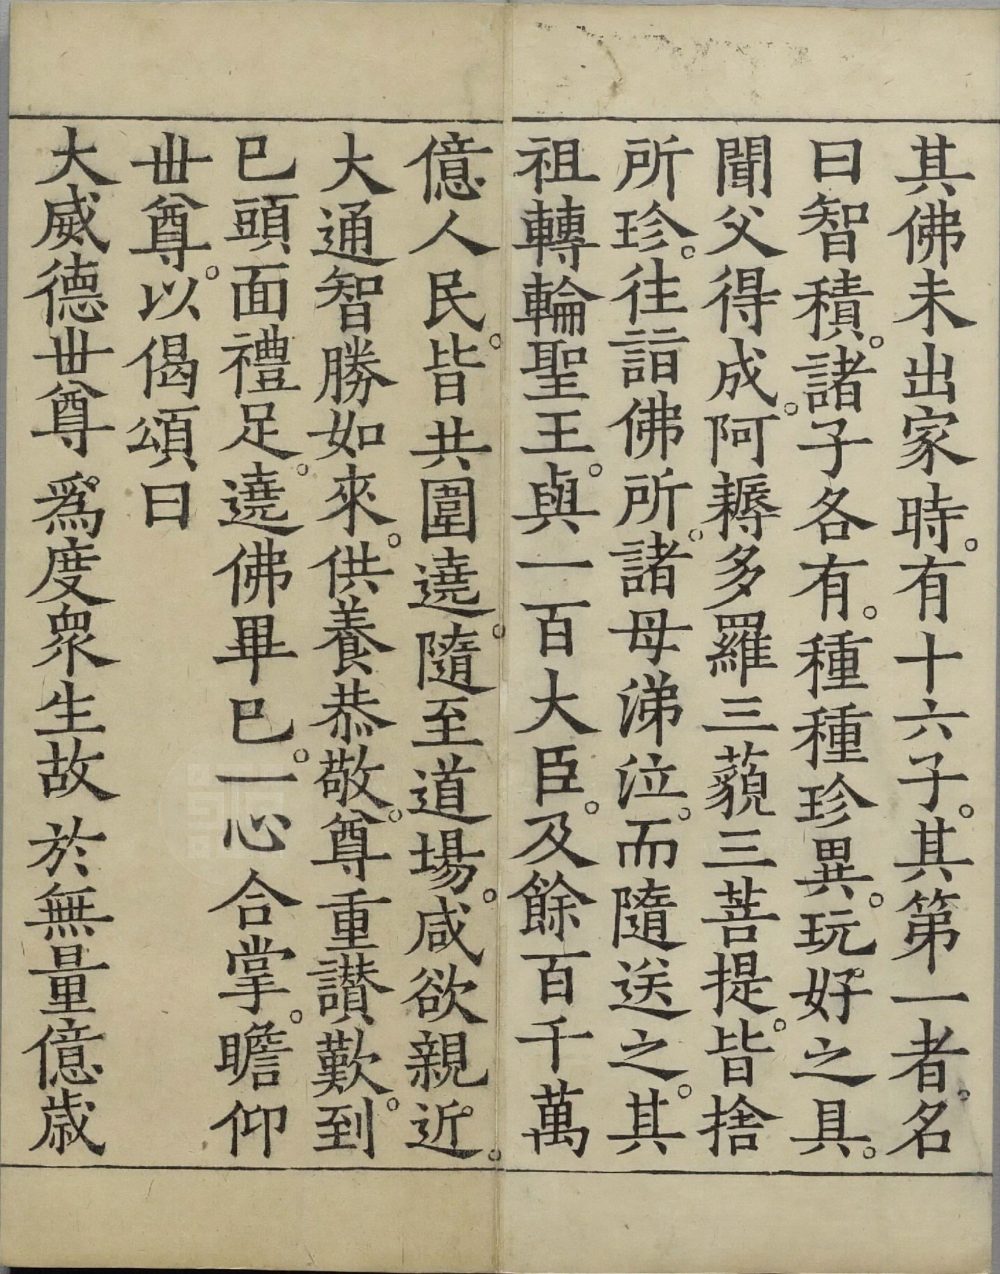 其佛未出家時。有十六子。其第一者。名
曰智積。諸子各有。種種珍異。玩好之具。
聞父得成。阿耨多羅三藐三菩提。皆捨
所珍。往詣佛所。諸母涕泣。而隨送之。其
祖轉輪聖王。與一百大臣。及餘百千萬
億人民。皆共圍遶。隨至道場。咸欲親近。
大通智勝如來。供養恭敬。尊重讃歎。到
已頭面禮足。遶佛畢已。一心合掌。瞻仰
世尊。以偈頌曰
大威德世尊。爲度衆生故 於無量億歲